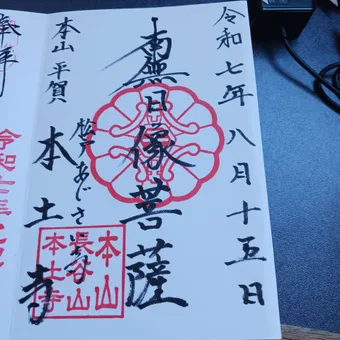 令和七年八月十五日
南無日像菩薩
松戸あじさ
本山 平賀
本土寺
本山
長谷山
本土寺
奉拝
令和七年